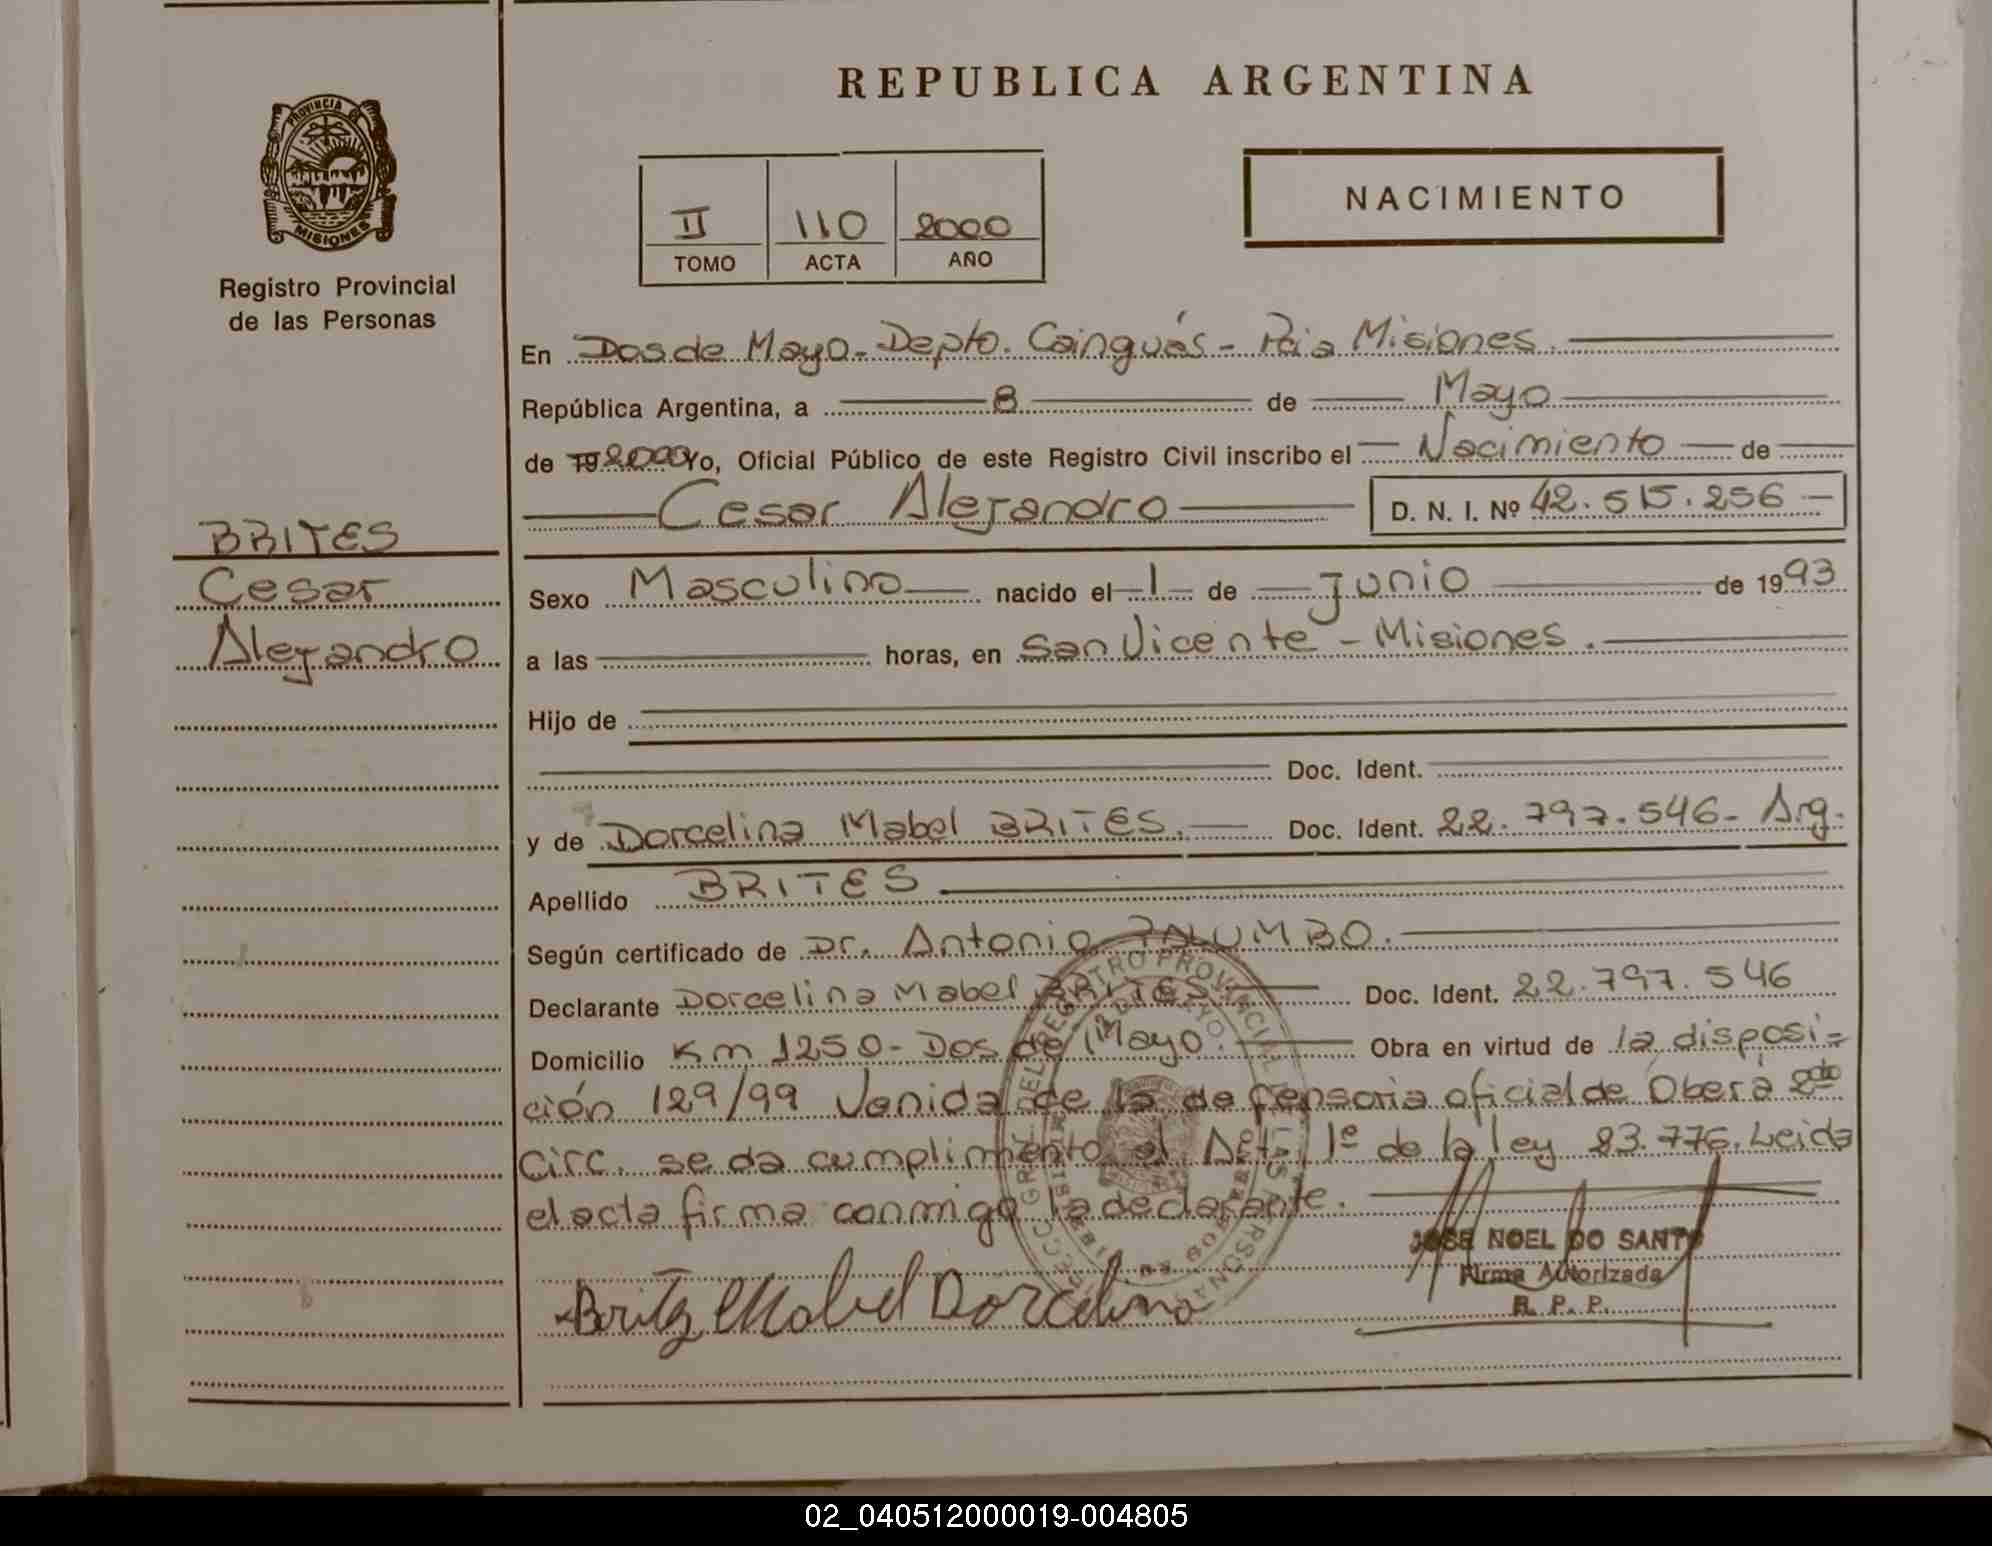 REPUBLICA ARGENTINA
PROVINCIA DE
MISIONES
Registro Provincial
de las Personas
NACIMIENTO
II 110 2000
TOMO ACTA AÑO
En Dos de Mayo - Depto. Cainguás - Pcia Misiones.
República Argentina, a 8 de Mayo
de 19 2000 Yo, Oficial Público de este Registro Civil inscribo el Nacimiento de
Cesar Alejandro D. N. I. Nº 42.515.256
BRITES
Cesar
Alejandro
Sexo Masculino nacido el 1 de Junio de 1993
a las horas, en San Vicente - Misiones.
Hijo de
Doc. Ident.
y de Dorcelina Mabel BRITES. Doc. Ident. 22.797.546- Arg.
Apellido BRITES
Según certificado de Dr. Antonio PALUMBO.
Declarante Dorcelina Mabel BRITES Doc. Ident. 22.797.546
Domicilio Km 1250 - Dos de Mayo. Obra en virtud de la disposi=
ción 129/99 Venida de la defensoria oficial de Oberá 2da
Circ. se da cumplimiento el Art. 1º de la ley 23.776. Leida
el acta firma conmigo la declarante.
JOSE NOEL DO SANTO
Firma Autorizada
R. P. P.
Britez Mabel Dorcelina
02_040512000019-004805